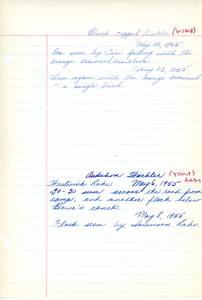 Black capped Warbler (WIWA)
May 20, 1955
One seen by Jim feeding with the
orange crowned warblers
May 23, 1955
Seen again with the orange crowned
- a single bird.
Audubon Warbler (YRWA)
Lake May 6, 1955
20-30 seen across the road from
camp, and another flock below
ranch.
May 8, 1955
Flock seen by Lake.